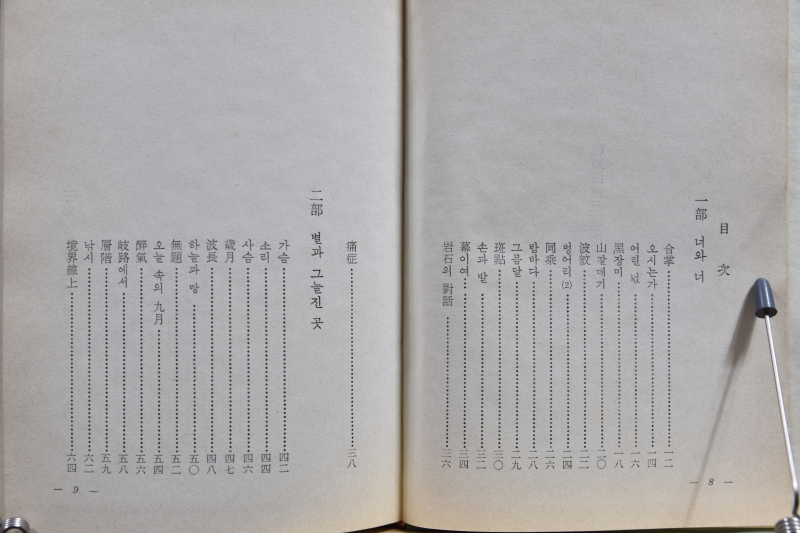 目次
一部 너와 너
合掌 一二
오시는가 一四
어린 넋 一六
黑장미 一八
山갈매기 二〇
波紋 二二
벙어리(2) 二四
同乘 二六
밤바다 二八
그믐달 二九
斑點 三〇
손과 발 三二
幕이여… 三四
岩石의 對話 三六
— 8 —
痛症 三八
二部 별과 그늘진 곳
가슴 四二
소리 四四
사슴 四六
歲月 四七
波長 四八
하늘과 땅 五〇
無題 五二
오늘 속의 九月 五四
醉氣 五六
岐路에서 五八
層階 五九
낚시 六二
境界線上 六四
— 9 —